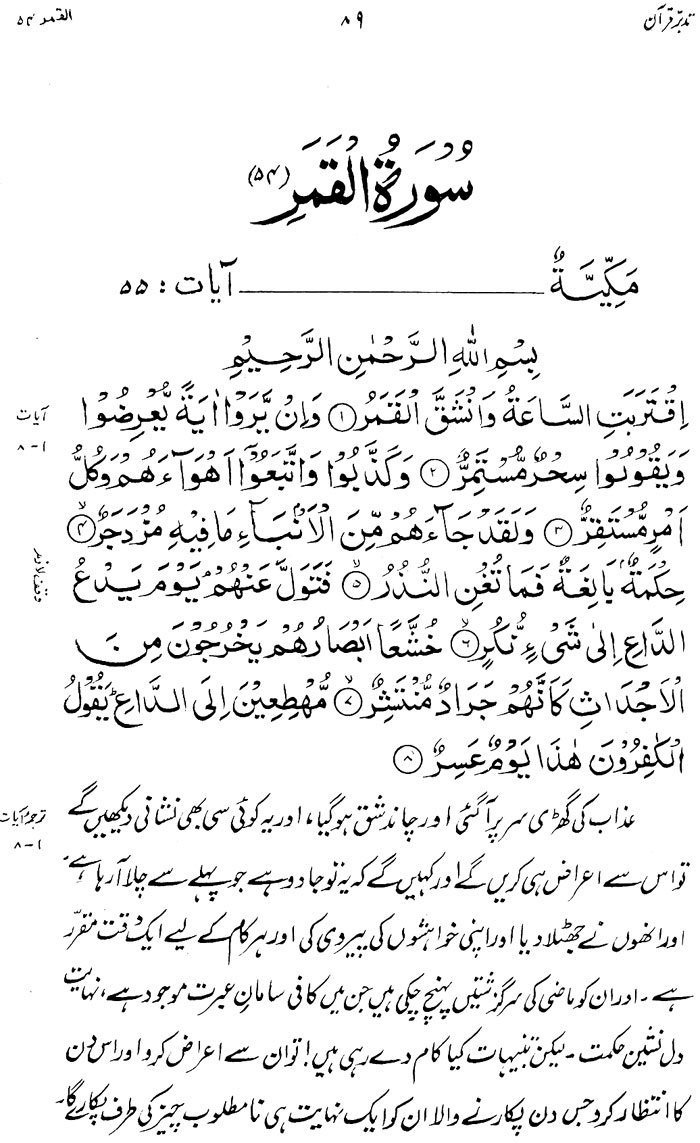 تدبرِ قرآن ۸۹ القمر ۵۴
سُوْرَةُ الْقَمَرِ (۵۴)
مَكِّيَّةٌ آیات : ۵۵
بِسْمِ اللهِ الرَّحْمٰنِ الرَّحِيْمِ
اِقْتَرَبَتِ السَّاعَةُ وَانْشَقَّ الْقَمَرُ ۱ وَاِنْ يَّرَوْا اٰيَةً يُّعْرِضُوْا
آیات
۱-۸
وَيَقُوْلُوْا سِحْرٌ مُّسْتَمِرٌّ ۲ وَكَذَّبُوْا وَاتَّبَعُوْٓا اَهْوَآءَهُمْ وَكُلُّ
اَمْرٍ مُّسْتَقِرٌّ ۳ وَلَقَدْ جَآءَهُمْ مِّنَ الْاَنْۢبَآءِ مَا فِيْهِ مُزْدَجَرٌ ۴
حِكْمَةٌۢ بَالِغَةٌ فَمَا تُغْنِ النُّذُرُ ۵ فَتَوَلَّ عَنْهُمْ يَوْمَ يَدْعُ
وقف لازم
الدَّاعِ اِلٰى شَيْءٍ نُّكُرٍ ۶ خُشَّعًا اَبْصَارُهُمْ يَخْرُجُوْنَ مِنَ
الْاَجْدَاثِ كَاَنَّهُمْ جَرَادٌ مُّنْتَشِرٌ ۷ مُّهْطِعِيْنَ اِلَى الدَّاعِ يَقُوْلُ
الْكٰفِرُوْنَ هٰذَا يَوْمٌ عَسِرٌ ۸
عذاب کی گھڑی سر پر آ گئی اور چاند شق ہو گیا، اور یہ کوئی سی بھی نشانی دیکھیں گے
ترجمۂ آیات
۱-۸
تو اس سے اعراض ہی کریں گے اور کہیں گے کہ یہ تو جادو ہے جو پہلے سے چلا آ رہا ہے۔
اور انھوں نے جھٹلا دیا اور اپنی خواہشوں کی پیروی کی اور ہر کام کے لیے ایک وقت مقرّر
ہے۔ اور ان کو ماضی کی سرگزشتیں پہنچ چکی ہیں جن میں کافی سامانِ عبرت موجود ہے، نہایت
دل نشین حکمت۔ لیکن تنبیہات کیا کام دے رہی ہیں! تو ان سے اعراض کرو اور اس دن
کا انتظار کرو جس دن پکارنے والا ان کو ایک نہایت ہی نامطلوب چیز کی طرف پکارے گا۔